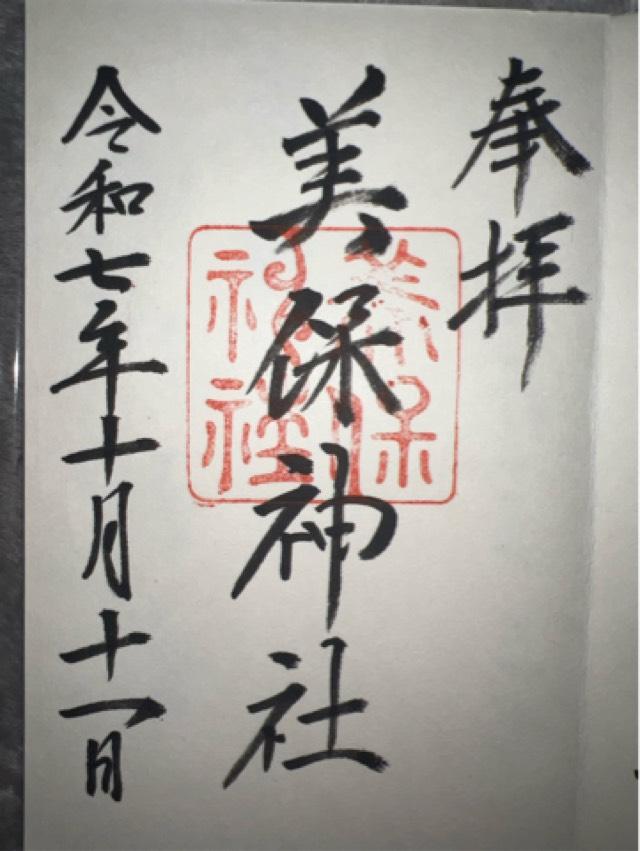 奉拝
美保神社
美保神社
令和七年十月十一日